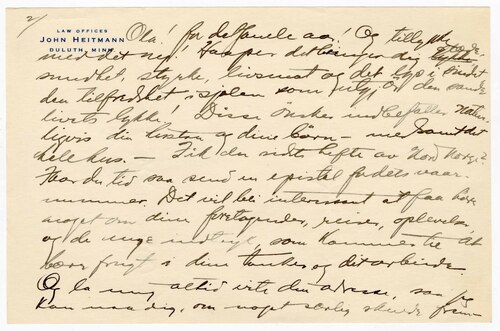 2/
LAW OFFICES
JOHN HEITMANN
DULUTH, MINN.
Ola! for de gamle aar! Og tillykke
med det nye! Haaper det bringer dig
sundhet, styrke, livsmot og det lys i sindet
den tilfredshet i sjælen som og den sande
livets lykke! Disse ønsker indbefatter natur-
ligvis din hustru og dine børn – med samt det
hele hus. – Fik du sidste hefte av Nord Norge?
Faar du tid saa send en epistel for dets vaar
nummer. Det vil bli interessant at faa høre
noget om dine foretagender, reiser, oplevelser
og de nye indtryk, som kommer til at
bære frugt i dine tanker og dit arbeide.
Og la mig altid vite din adresse, saa jeg
kan naa dig, om noget særlig skulde frem-